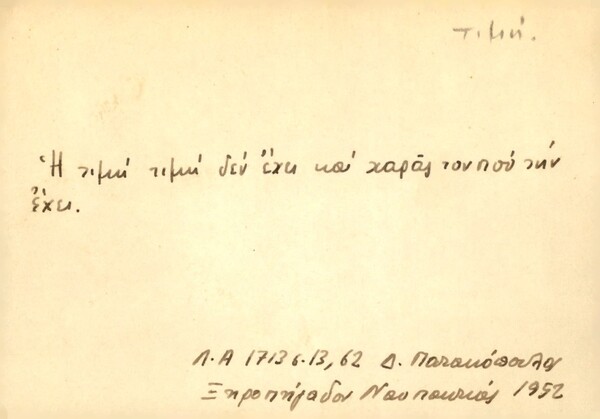 τιμή.
Ἡ τιμή τιμή δέν ἔχει καί χαρᾶς τον πού τήν
ἔχει.
Λ.Α 1713 σ. 13, 62 Δ. Παπακόπουλος
Ξηροπήγαδον Ναυπακτίας 1952